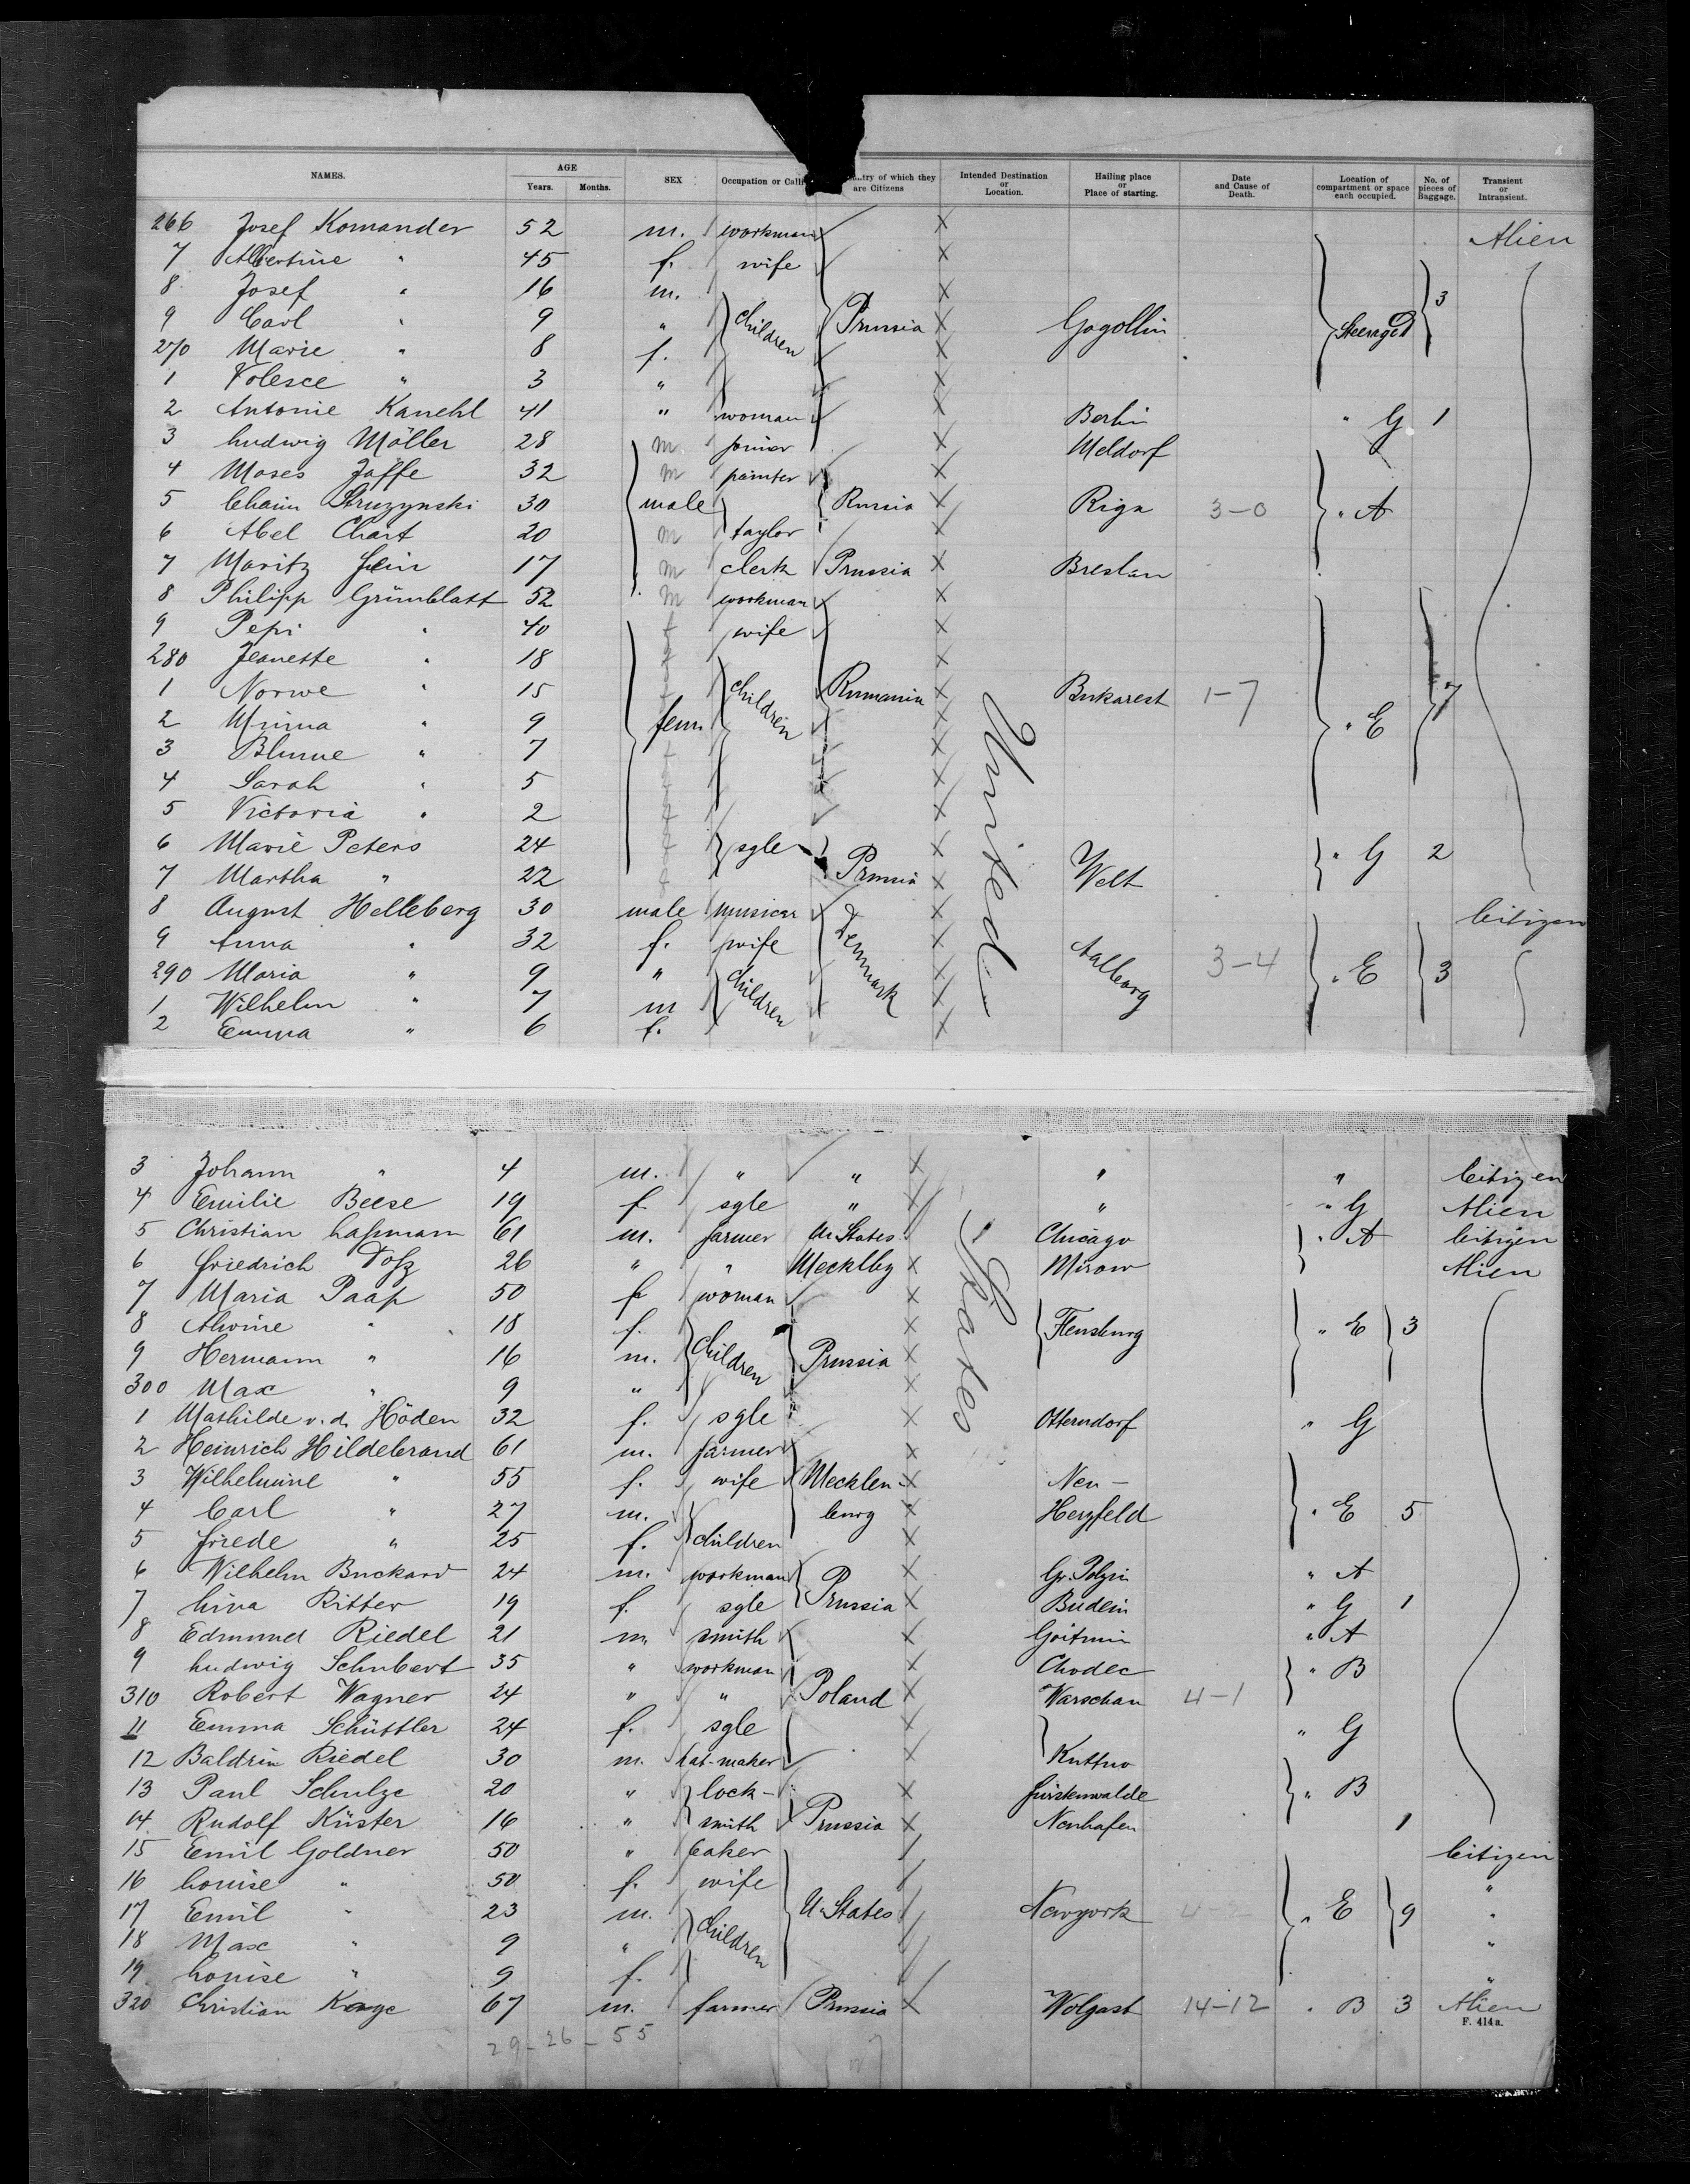 NAMES. AGE Years. Months. SEX Occupation or Calli ntry of which they are Citizens Intended Destination or Location. Hailing place or Place of starting. Date and Cause of Death. Location of compartment or space each occupied. No. of pieces of Baggage. Transient or Intransient.
266 Josef Komander 52 m. workman Alien
7 Albertine " 45 f. wife
8 Josef " 16 m. 3
9 Carl " 9 " children Prussia Gogollin Steerage
270 Marie " 8 f.
1 Volesce " 3 "
2 Antonie Kanehl 41 " woman Berlin " G 1
3 Ludwig Möller 28 m joiner Meldorf
4 Moses Jaffe 32 m painter
5 Chaim Struzynski 30 male Russia Riga 3-0 " A
6 Abel Chart 20 m taylor
7 Moritz Fein 17 m clerk Prussia Breslau
8 Philipp Grünblatt 52 m workman
9 Pepi " 40 f wife
280 Jeanette " 18 f
1 Norwe " 15 f children Rumania Bukarest 1-7 7
2 Minna " 9 fem. " E
3 Blume " 7 f
4 Sarah " 5 f
5 Victoria " 2 f
6 Marie Peters 24 f sgle " G 2
7 Martha " 22 f Prussia Welt
8 August Helleberg 30 male musician Citizen
9 Anna " 32 f. wife Denmark
290 Maria " 9 " children Aalborg 3-4 " E 3
1 Wilhelm " 7 m
2 Emma " 6 f.
United
3 Johann " 4 m. " " " " Citizen
4 Emilie Beese 19 f sgle " " " G Alien
5 Christian Laßmann 61 m. farmer U. States Chicago " A Citizen
6 Friedrich 26 " " Mecklbg Mirow Alien
7 Maria Paap 50 f woman
8 Alwine " 18 f. Flensburg " E 3
9 Hermann " 16 m. children Prussia
300 Max " 9 "
1 Mathilde v. d. Höden 32 f. sgle Otterndorf " G
2 Heinrich Hildebrand 61 m. farmer
3 Wilhelmine " 55 f. wife Mecklen- Neu-
4 Carl " 27 m. burg Herzfeld " E 5
5 Friede " 25 f. children
6 Wilhelm Buckard 24 m. workman Gr. Polzin " A
7 Lina Ritter 19 f. sgle Prussia Budein " G 1
8 Edmund Riedel 21 m. smith " A
9 Ludwig Schubert 35 " workman Chodec " B
310 Robert Wagner 24 " " Poland Warschau 4-1
11 Emma Schüttler 24 f. sgle " G
12 Baldrin Riedel 30 m. hat-maker Kuttno
13 Paul Schulze 20 " lock- Fürstenwalde " B
14 Rudolf Küster 16 " smith Prussia Neuhafen 1
15 Emil Goldner 50 " baker Citizen
16 Louise " 50 f. wife "
17 Emil " 23 m. U. States Newyork 4- " E 9 "
18 Max " 9 " children "
19 Louise " 9 f. "
320 Christian 67 m. farmer Prussia Wolgast 14-12 " B 3 Alien
States
F. 414 a.
29-26-55